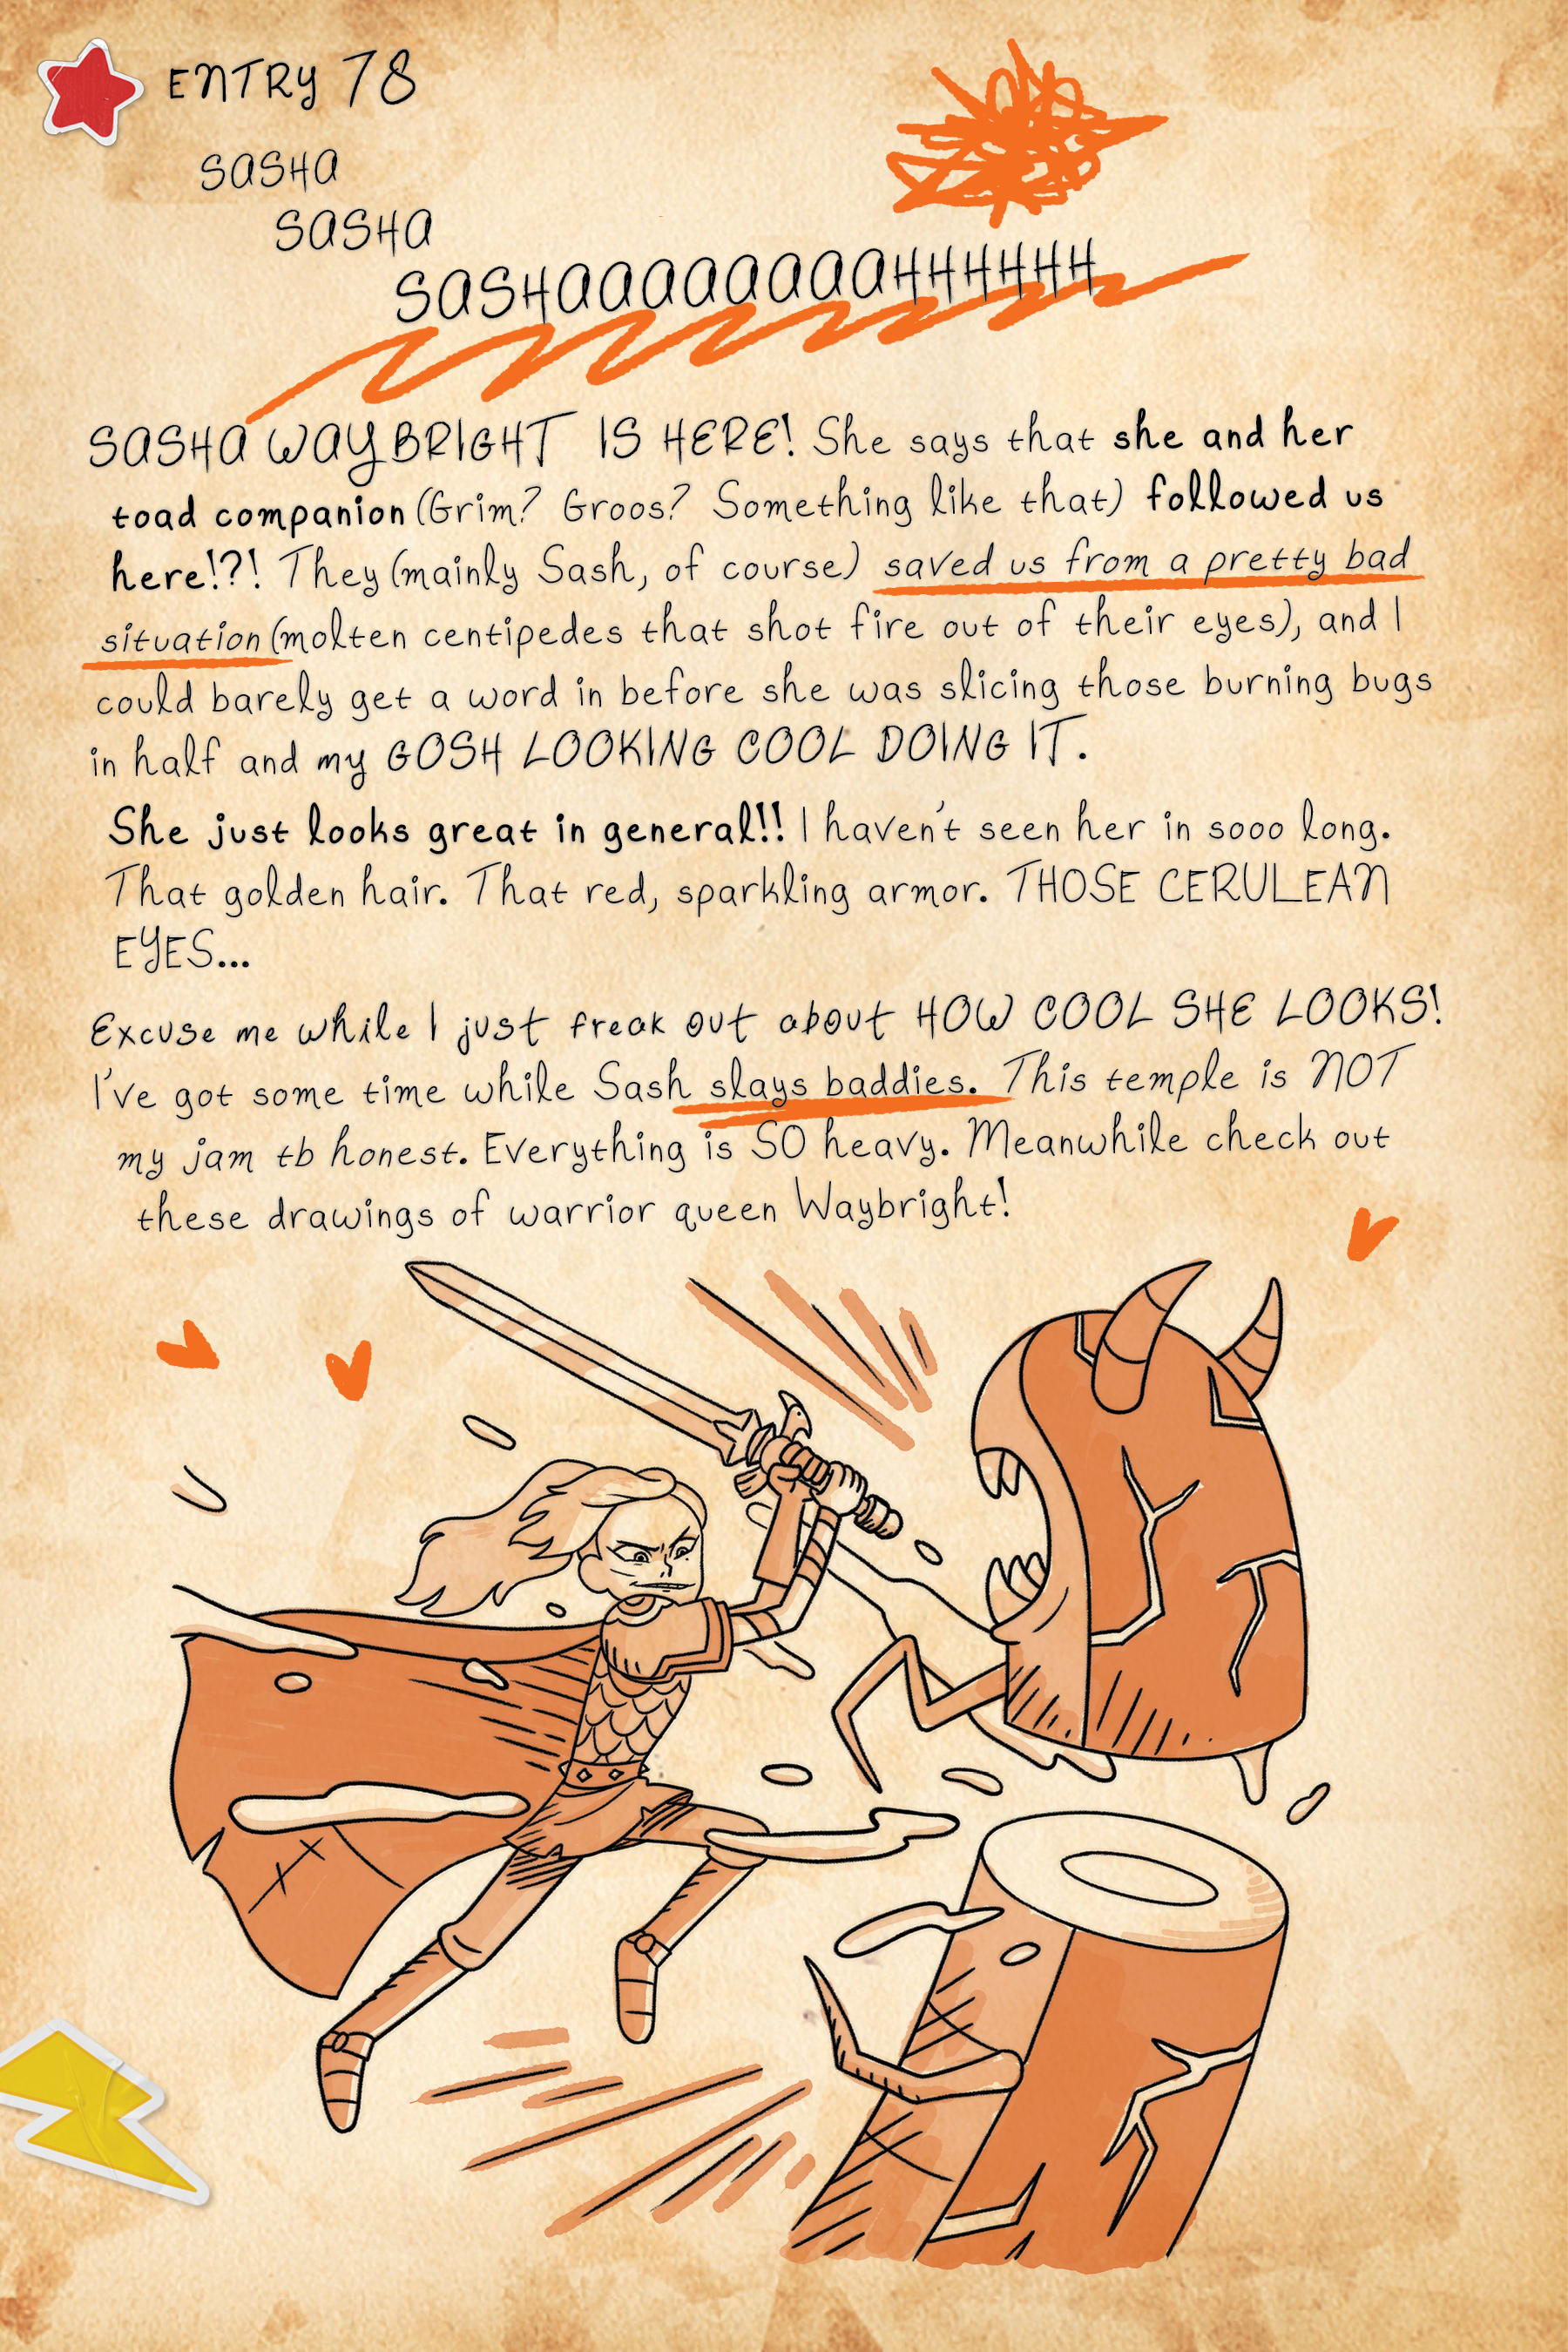 ENTRY 78
SASHA
SASHA
SASHAAAAAAAAAHHHHHH
SASHA WAYBRIGHT IS HERE! She says that she and her
toad companion (Grim? Groos? Something like that) followed us
here!?! They (mainly Sash, of course) saved us from a pretty bad
situation (molten centipedes that shot fire out of their eyes), and I
could barely get a word in before she was slicing those burning bugs
in half and my GOSH LOOKING COOL DOING IT.
She just looks great in general!! I haven't seen her in sooo long.
That golden hair. That red, sparkling armor. THOSE CERULEAN
EYES...
Excuse me while I just freak out about HOW COOL SHE LOOKS!
I've got some time while Sash slays baddies. This temple is NOT
my jam tb honest. Everything is SO heavy. Meanwhile check out
these drawings of warrior queen Waybright!